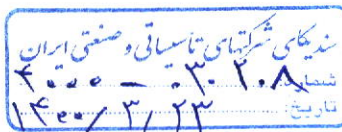 سندیکای شرکتهای تاسیساتی و صنعتی ایران
شماره: ۳۰۲۰۸ – ۴۰۰۰
تاریخ: ۱۴۰۰/۳/۲۳